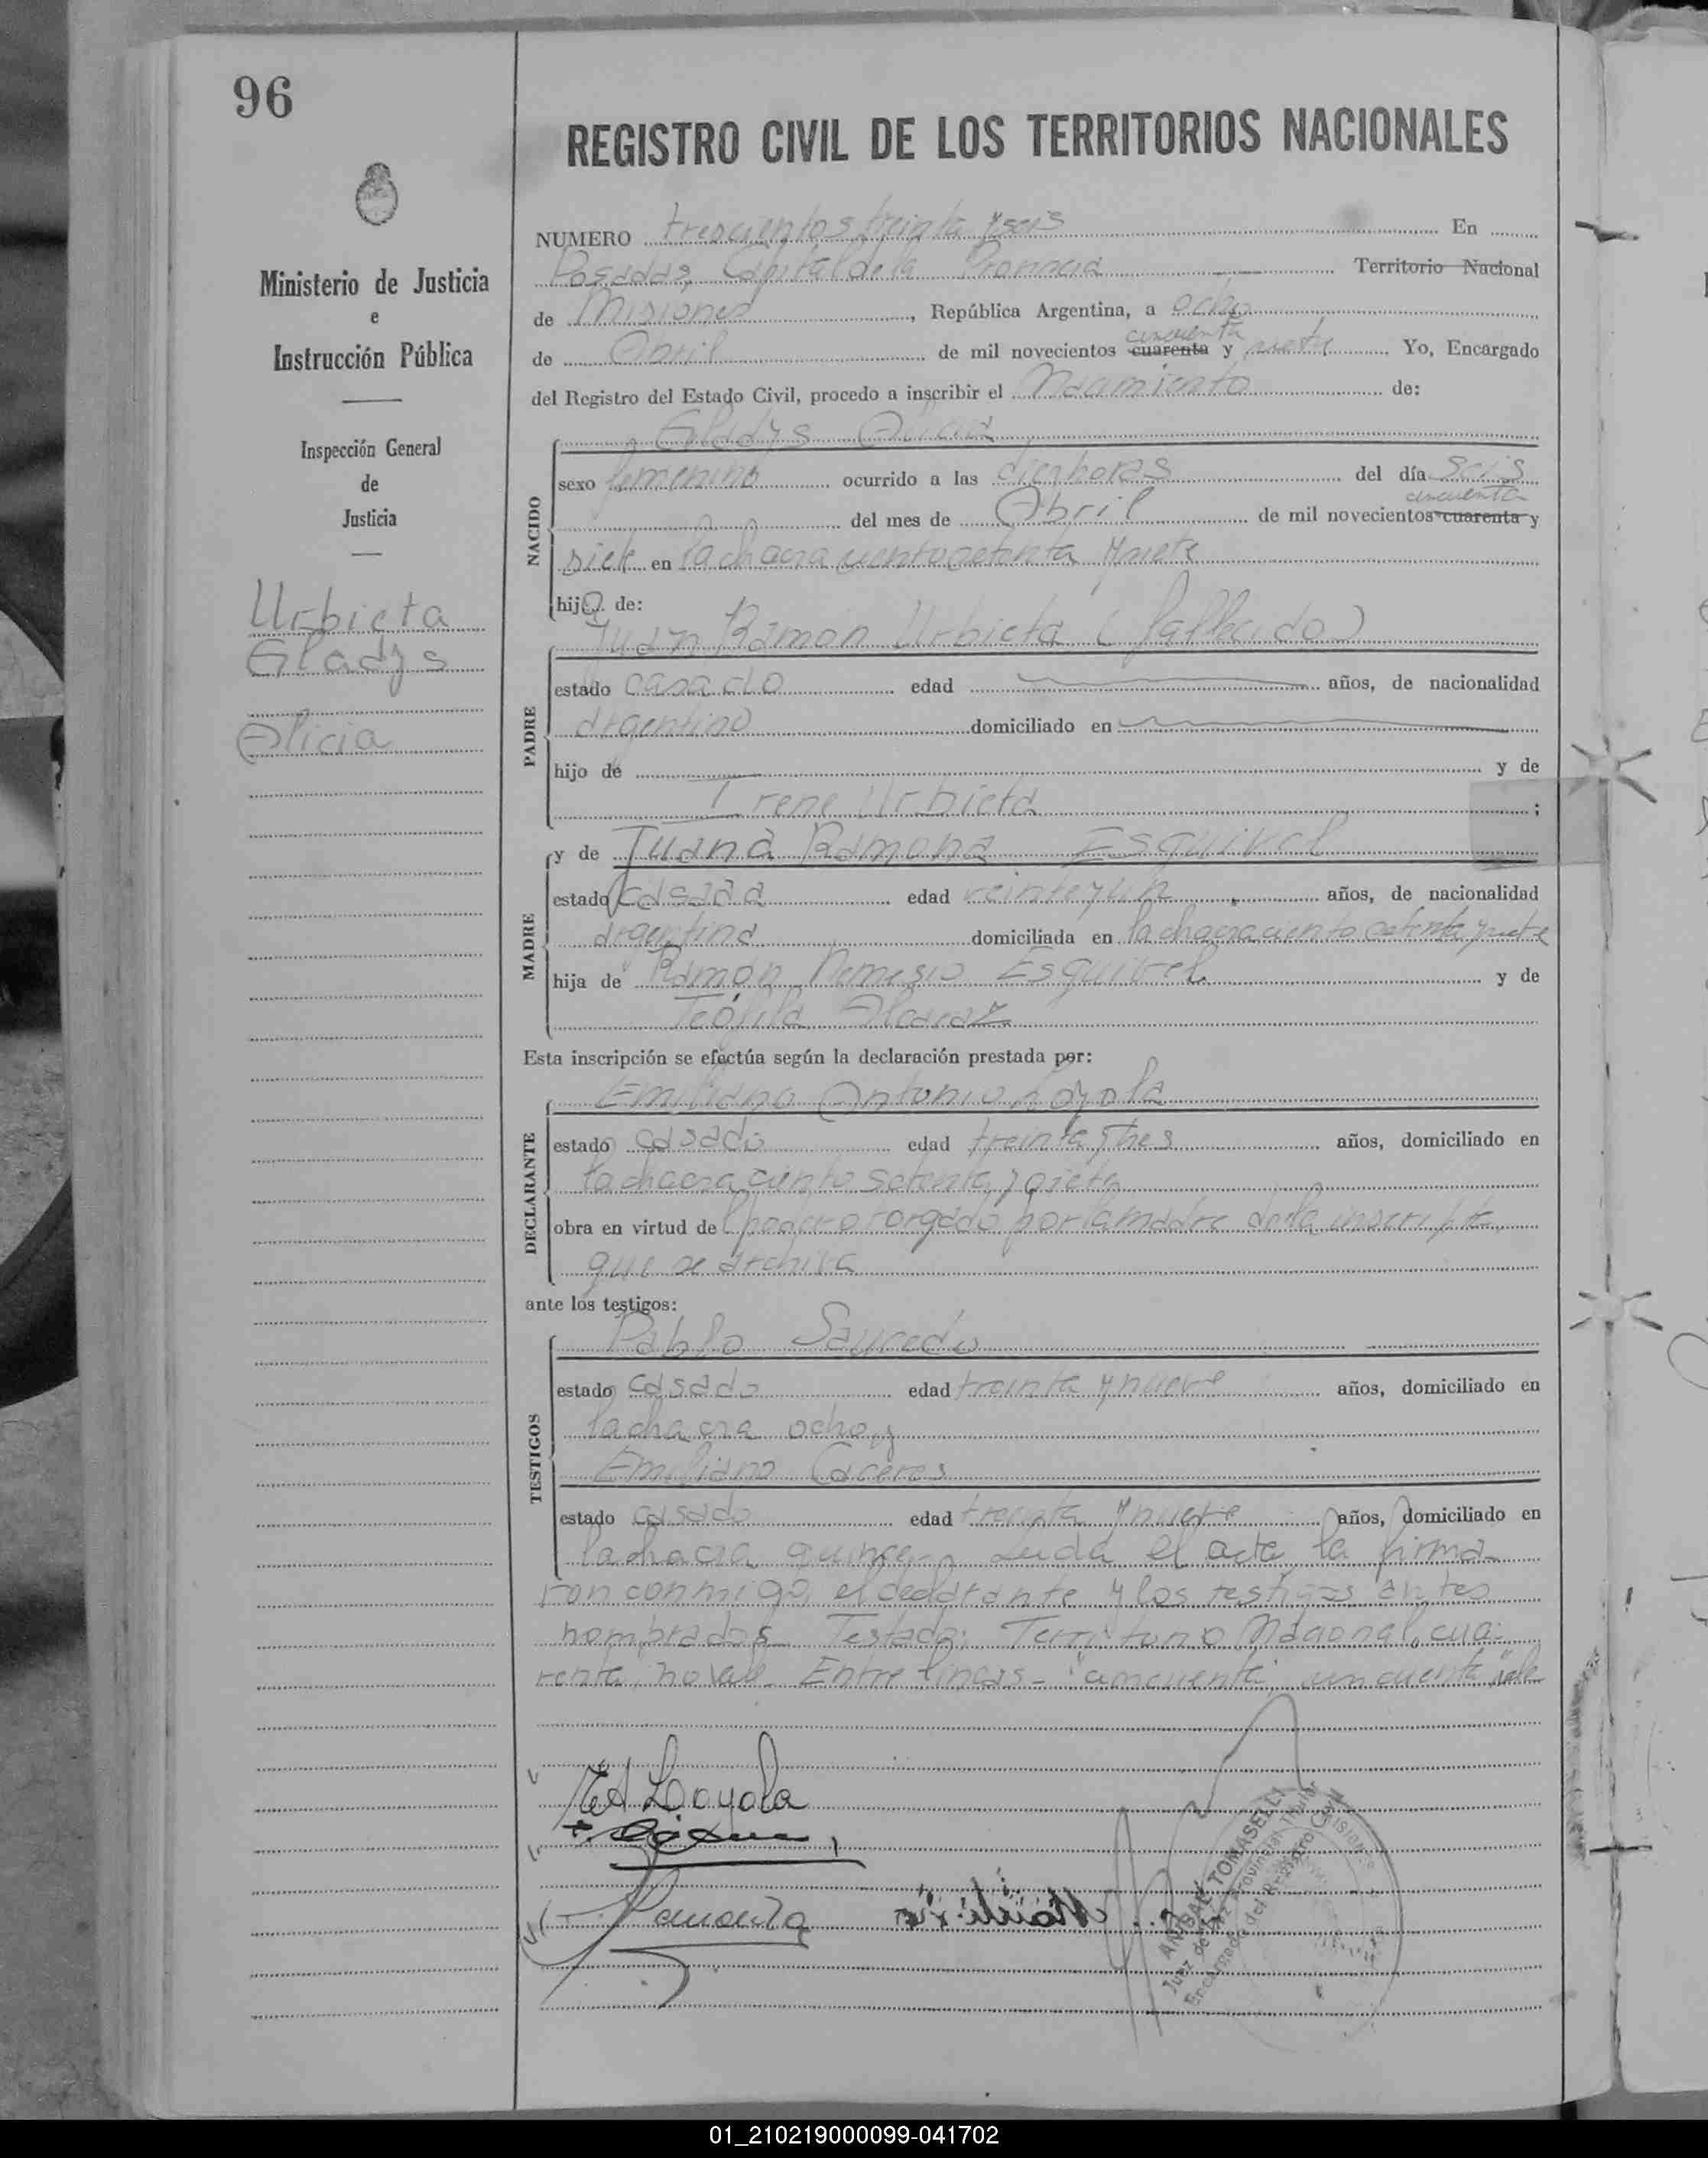 96
REGISTRO CIVIL DE LOS TERRITORIOS NACIONALES
Ministerio de Justicia
e
Instrucción Pública
Inspección General
de
Justicia
Urbieta
Gladys
Alicia
NUMERO trescientos treinta y seis En
Posadas, Capital de la Provincia Territorio Nacional
de Misiones, República Argentina, a ocho
de Abril de mil novecientos cuarenta cincuenta y siete Yo, Encargado
del Registro del Estado Civil, procedo a inscribir el Nacimiento de:
Gladys Alicia
NACIDO
sexo femenino ocurrido a las diez horas del día seis
del mes de Abril de mil novecientos cuarenta cincuenta y
siete en la chacra ciento setenta y siete
hija de:
Juan Ramon Urbieta (fallecido)
PADRE
estado casado edad años, de nacionalidad
argentino domiciliado en
hijo de y de
Irene Urbieta ;
y de Juana Ramona Esquivel
MADRE
estado casada edad veinte y un años, de nacionalidad
argentina domiciliada en la chacra ciento setenta y siete
hija de Ramón Nemesio Esquivel y de
Teófila Alcaraz
Esta inscripción se efectúa según la declaración prestada por:
Emiliano Antonio Loyola
DECLARANTE
estado casado edad treinta y tres años, domiciliado en
la chacra ciento setenta y siete
obra en virtud del poder otorgado por la madre de la inscripta
que se archiva
ante los testigos:
Pablo Saucedo
TESTIGOS
estado casado edad treinta y nueve años, domiciliado en
la chacra ocho y
Emiliano Caceres
estado casado edad treinta y nueve años, domiciliado en
la chacra quince.- Leida el acta la firma-
ron conmigo, el declarante y los testigos antes
nombrados. Testado: Territorio Nacional, cua-
renta, no vale. Entre lineas- "cincuenta, cincuenta" vale
Loyola
ANIBAL TOMASELLI
Juez de Paz Provincial Titular
Encargado del Registro Civil
MISIONES
01_210219000099-041702